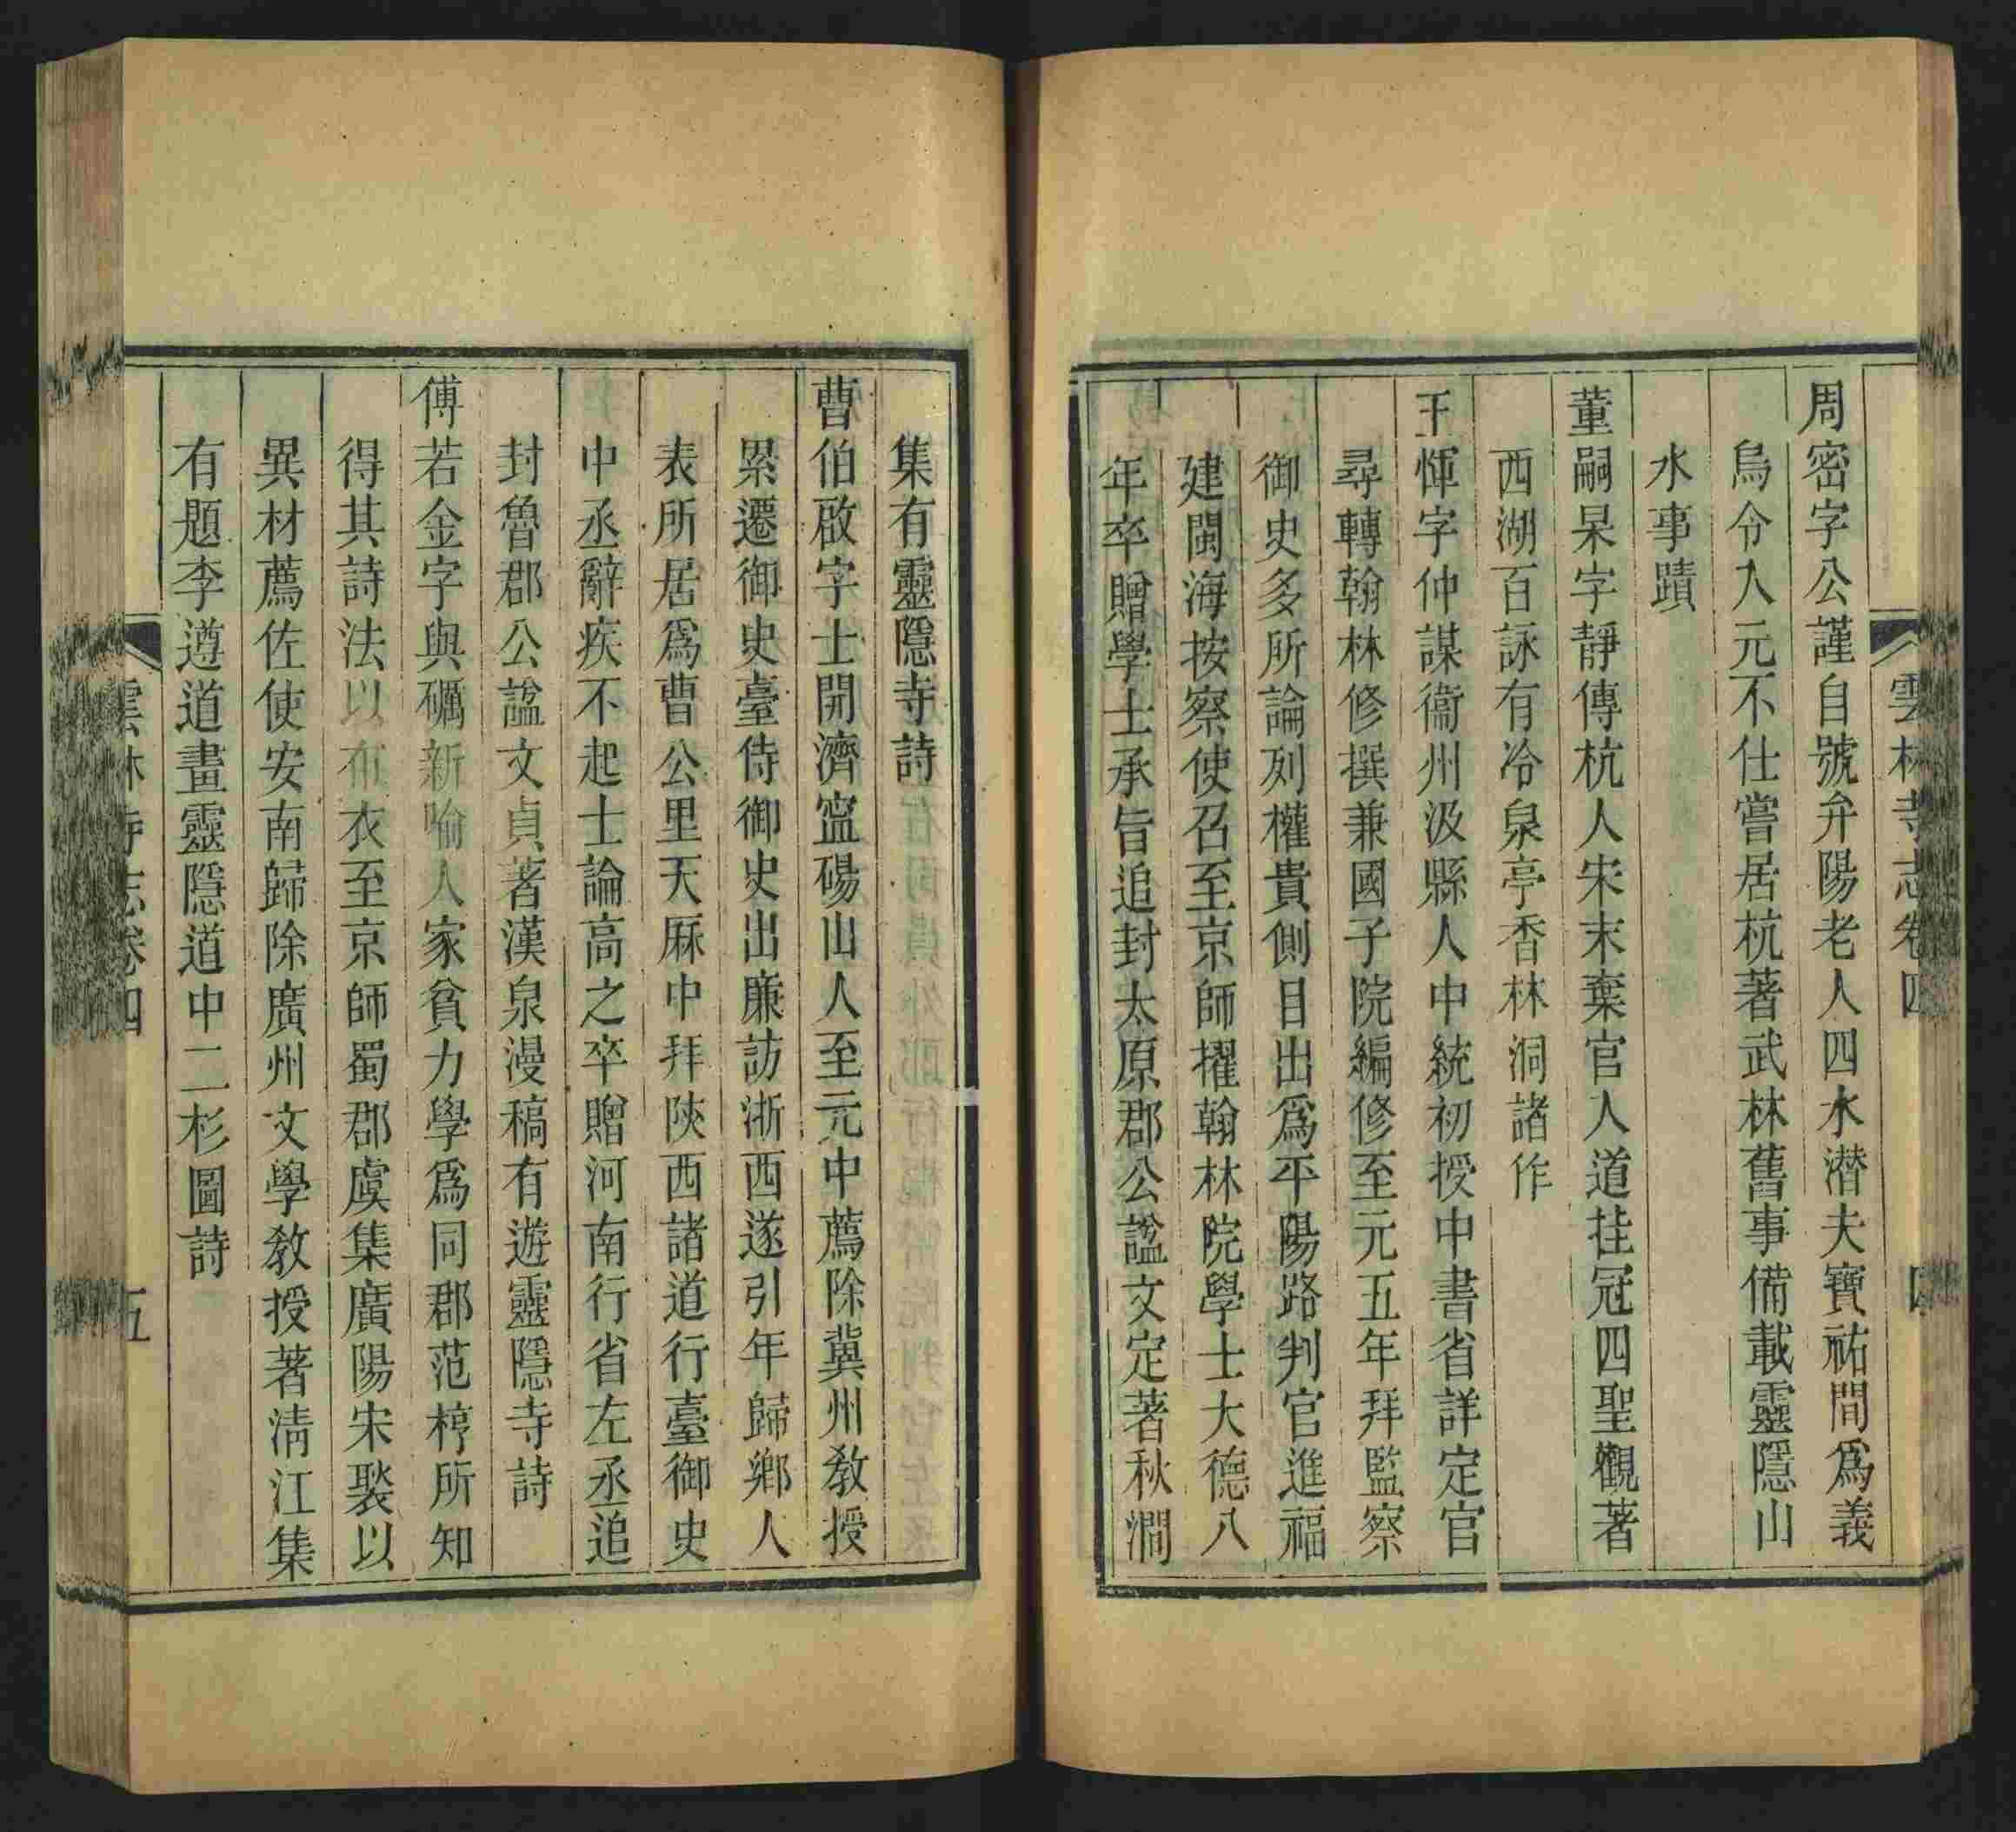 周密字公謹自號弁陽老人四水潛夫寶祐間爲義
烏令入元不仕嘗居杭著武林舊事備載靈隱山
水事蹟
董嗣杲字靜傳杭人宋末棄官入道挂冠四聖觀著
西湖百詠有冷泉亭香林洞諸作
王惲字仲謀衞州汲縣人中統初授中書省詳定官
尋轉翰林修撰兼國子院編修至元五年拜監察
御史多所論列權貴側目出爲平陽路判官進福
建閩海按察使召至京師擢翰林院學士大德八
年卒贈學士承旨追封太原郡公諡文定著秋澗
雲林寺志卷四
集有靈隱寺詩
曹伯啟字士開濟寍碭山人至元中薦除冀州敎授
累遷御史臺侍御史出廉訪浙西遂引年歸鄕人
表所居爲曹公里天厤中拜陝西諸道行臺御史
中丞辭疾不起士論高之卒贈河南行省左丞追
封魯郡公諡文貞著漢泉漫稿有遊靈隱寺詩
傅若金字與礪新喻人家貧力學爲同郡范梈所知
得其詩法以布衣至京師蜀郡虞集廣陽宋褧以
異材薦佐使安南歸除廣州文學敎授著淸江集
有題李遵道畫靈隱道中二杉圖詩
雲林寺志卷四 五